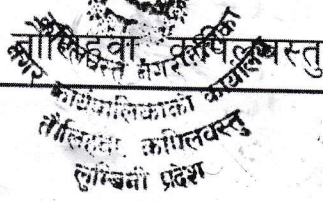 तौलिहवा कपिलवस्तु
कपिलवस्तु नगरपालिका
नगर कार्यपालिकाको कार्यालय
तौलिहवा, कपिलवस्तु
लुम्बिनी प्रदेश